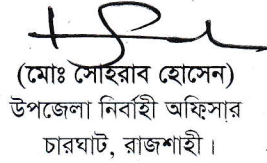 (মোঃ সোহরাব হোসেন)
উপজেলা নির্বাহী অফিসার
চারঘাট, রাজশাহী।